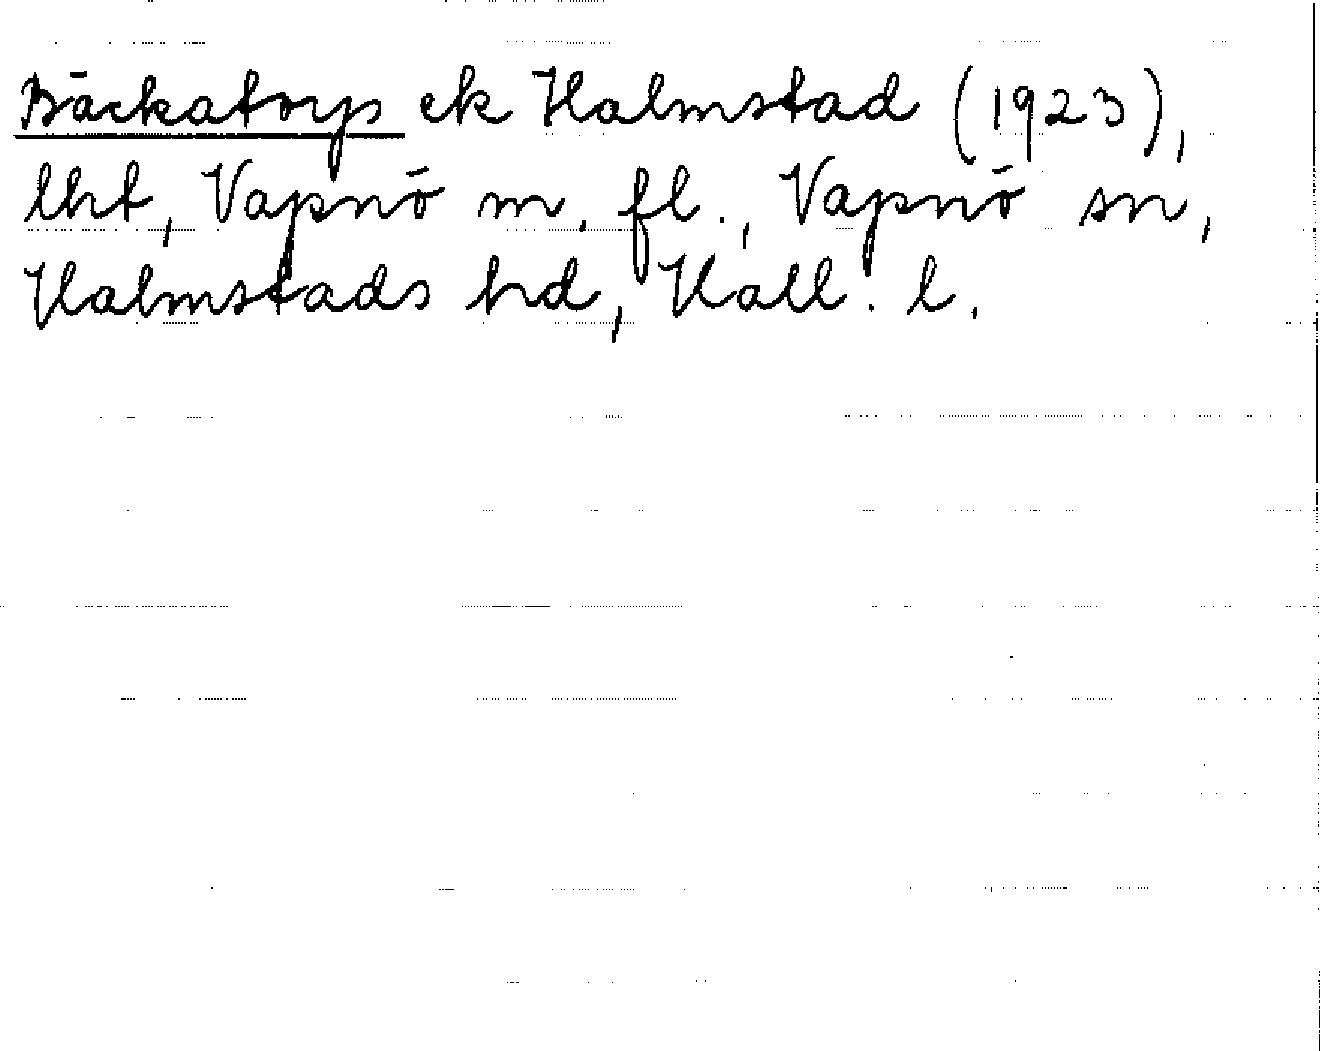 Bäckatorp ek Halmstad (1923),
lht, Vapnö m. fl., Vapnö sn,
Halmstads hd, Hall. l.